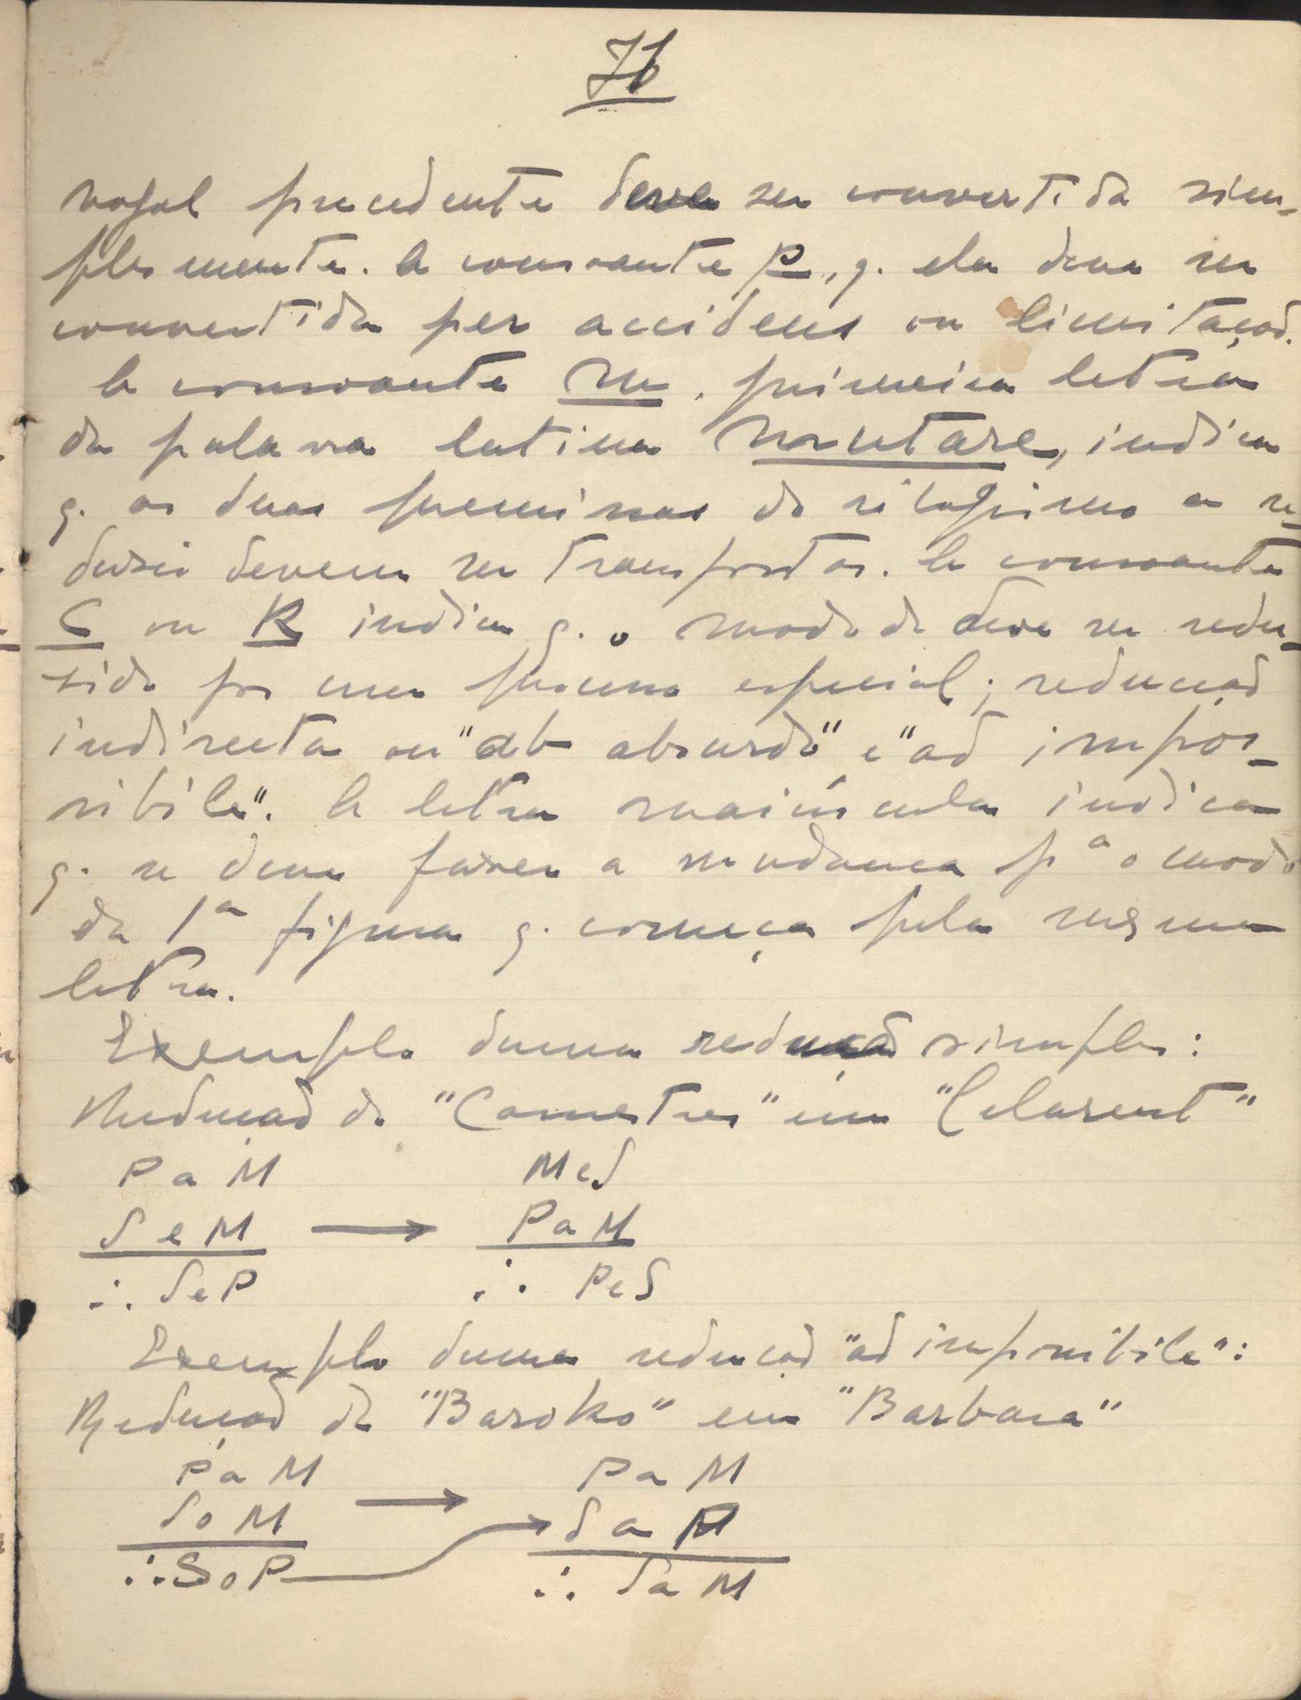 76
vogal precedente deve ser convertida sim-
plesmente. A consoante P, q. ela deve ser
convertida per accidens ou limitação.
A consoante M, primeira letra
da palavra latina Mutare, indica
q. as duas premissas do silogismo a re-
duzir devem ser transpostas. A consoante
C ou K indica q. o modo deve ser redu-
zido por um processo especial; redução
indirecta ou "ab absurdo" e "ad impos-
sibile". A letra maiúscula indica
q. se deve fazer a mudança pª o modo
da 1ª figura q. começa pela mesma
letra.
Exemplo duma redução simples:
Redução de "Camestres" em "Celarent"
PaM MeS
SeM → PaM
∴ SeP ∴ PeS
Exemplo duma redução "ad impossibile":
Redução de "Baroko" em "Barbara"
PaM PaM
SoM → SaP
∴ SoP ∴ SaM